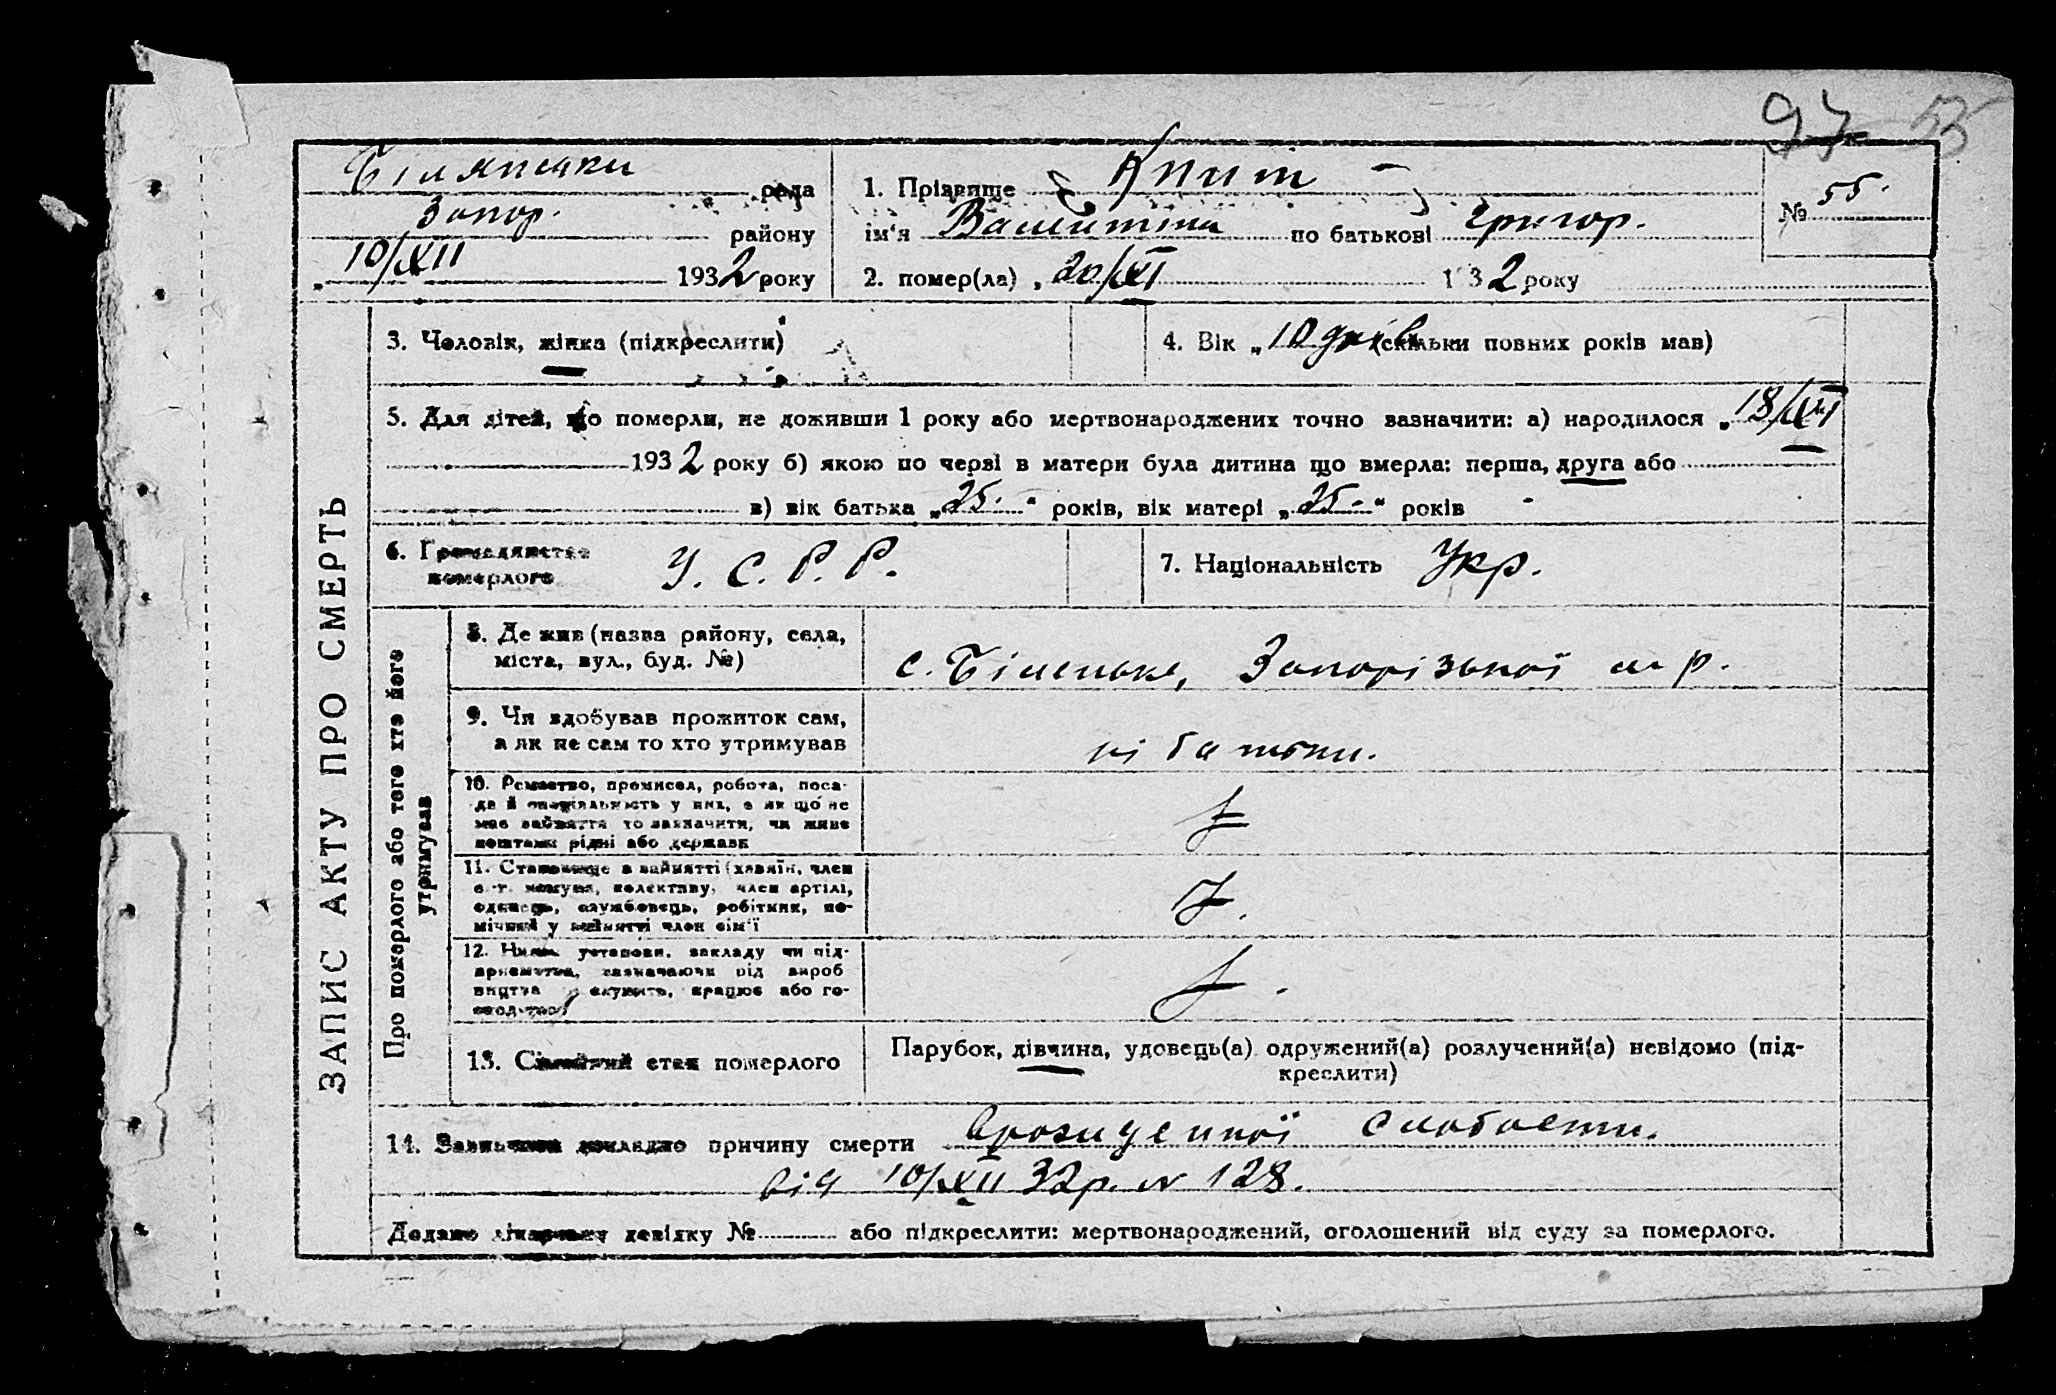 97 55
рада
Запор. району
10/XII 1932 року
1. Прізвище Кпит
ім'я Валентина по батькові Григор.
2. помер(ла) „ 20/XI 1932 року
№ 55.
3. Чоловік, жінка (підкреслити)
4. Вік „ 10 днів (скільки повних років мав)
5. Для дітей, що померли, не доживши 1 року або мертвонароджених точно зазначити: а) народилося „ 18/XI
1932 року б) якою по черзі в матери була дитина що вмерла: перша, друга або
в) вік батька „ 25 “ років, вік матері „ 25 “ років
6. Громадянство
померлого
У. С. Р. Р.
7. Національність Укр.
ЗАПИС АКТУ ПРО СМЕРТЬ
Про померлого або того хто його
утримував
8. Де жив (назва району, села,
міста, вул., буд. №)
с. Біленьке, Запорізької р.
9. Чи здобував прожиток сам,
а як не сам то хто утримував
ні батьки.
10. Ремество, промисел, робота, поса-
да й спеціяльність у них, а як що не
має зайняття то зазначити, чи живе
коштами рідні або держави
11. Становище в зайнятті (хазяїн, член
колективу, член артілі,
одинець, службовець, робітник, по-
мічний у зайнятті член сім'ї
12. Назва установи, закладу чи під-
приємства, зазначаючи рід вироб
ництва служить, працює або го-
13. Сімейний стан померлого
Парубок, дівчина, удовець(а) одружений(а) розлучений(а) невідомо (під-
креслити)
14. Зазначити докладно причину смерти врожденної слабости.
від 10/XII 32р. № 128.
Додано лікарську довідку № або підкреслити: мертвонароджений, оголошений від суду за померлого.